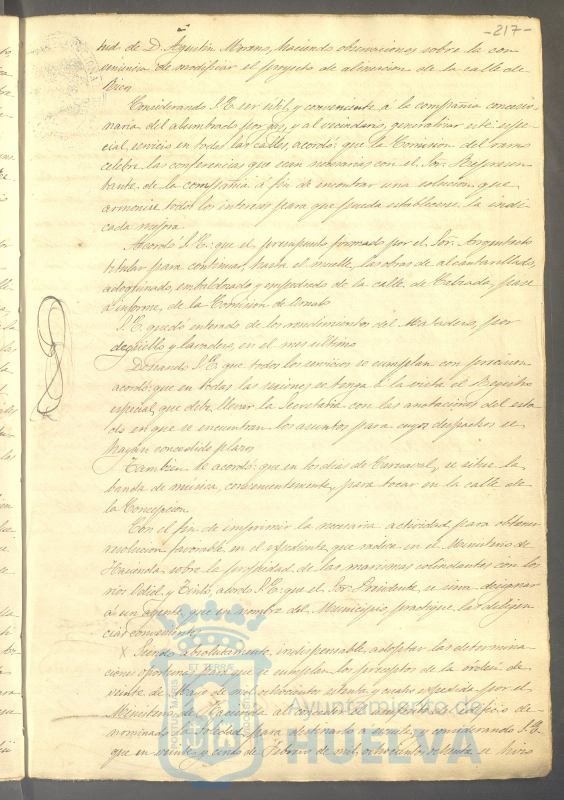 -217-
tud de D. Agustin Moreno, haciendo observaciones sobre la con-
veniencia de modificar el proyecto de alineacion de la calle de
Rico
Considerando S.E. ser util y conveniente á la compañia concesio-
naria del alumbrado por gas, y al vecindario, generalizar este espe-
cial servicio en todas las calles, acordó: que la Comision del ramo
celebre las conferencias que sean necesarias con el Sor. Represen-
tante de la compañia á fin de encontrar una solucion que
armonice todos los intereses para que pueda establecerse la indi-
cada mejora.
Acordó S.E: que el presupuesto formado por el Sor. Arquitecto
titular para continuar, hasta el muelle, las obras de alcantarillado,
adoquinado, embaldosado y empedrado de la calle de pase
á informe, de la Comision de Ornato
S.E. quedó enterado de los rendimientos del Matadero, por
degüello y lavadero, en el mes último
Deseando S.E. que todos los servicios se cumplan con precision
acordó: que en todas las sesiones se tenga á la vista el Registro
especial, que debe llevar la Secretaria con las anotaciones del esta-
do en que se encuentran los asuntos para cuyos despachos se
hayan concedido plazos
Tambien se acordó: que en los dias de Carnaval, se sitúe la
banda de música, convenientemente, para tocar en la calle de
la Concepcion
Con el fin de imprimir la necesaria actividad para obtener
resolucion favorable en el espediente, que radica en el Ministerio de
Hacienda sobre la propiedad de las marismas colindantes con los
rios Odiel y Tinto, acordó S.E: que el Sor. Presidente se sirva designar
á un agente que en nombre del Municipio, practique las diligen-
cias convenientes
X Siendo absolutamente indispensable adoptar las determina-
ciones oportunas para que se cumplan los preceptos de la orden de
veinte de Mayo de mil ochocientos setenta y cuatro espedida por el
Ministerio de Hacienda al conceder el espresado edificio de-
nominado la Soledad, para destinarlo a escuelas, y considerando S.E.
que en veinte y cinco de Febrero de mil ochocientos ochenta se hizo
Ayuntamiento de
HUELVA